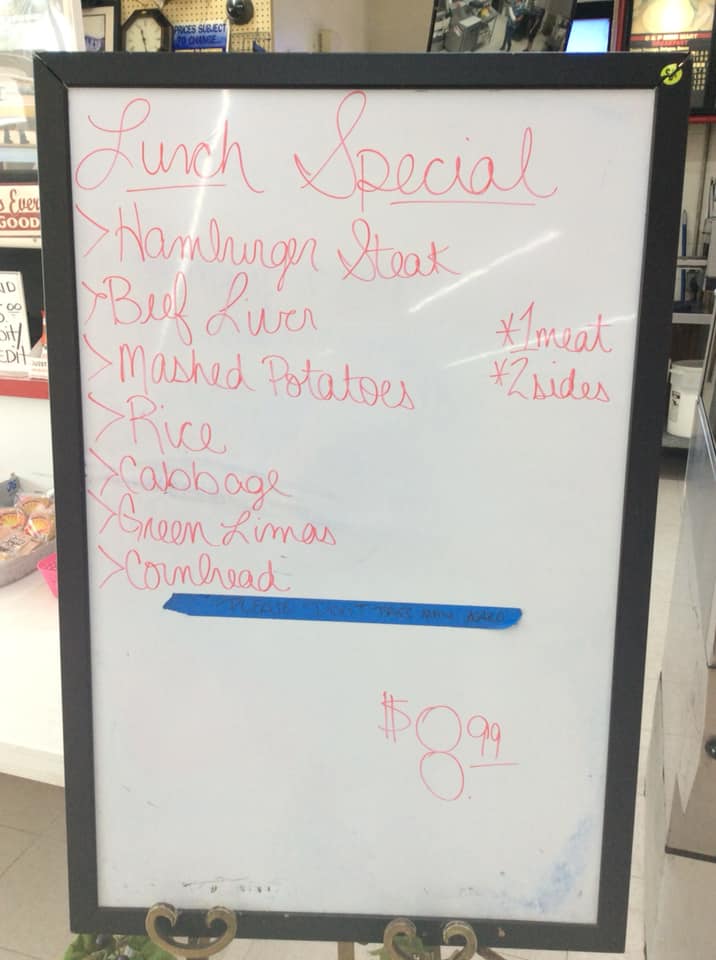 PRICES SUBJECT
TO CHANGE
Lunch Special
>Hamburger Steak
>Beef Liver
>Mashed Potatoes
>Rice
>Cabbage
>Green Limas
>Cornbread
*1 meat
*2 sides
PLEASE DON'T
$8.99
GOOD